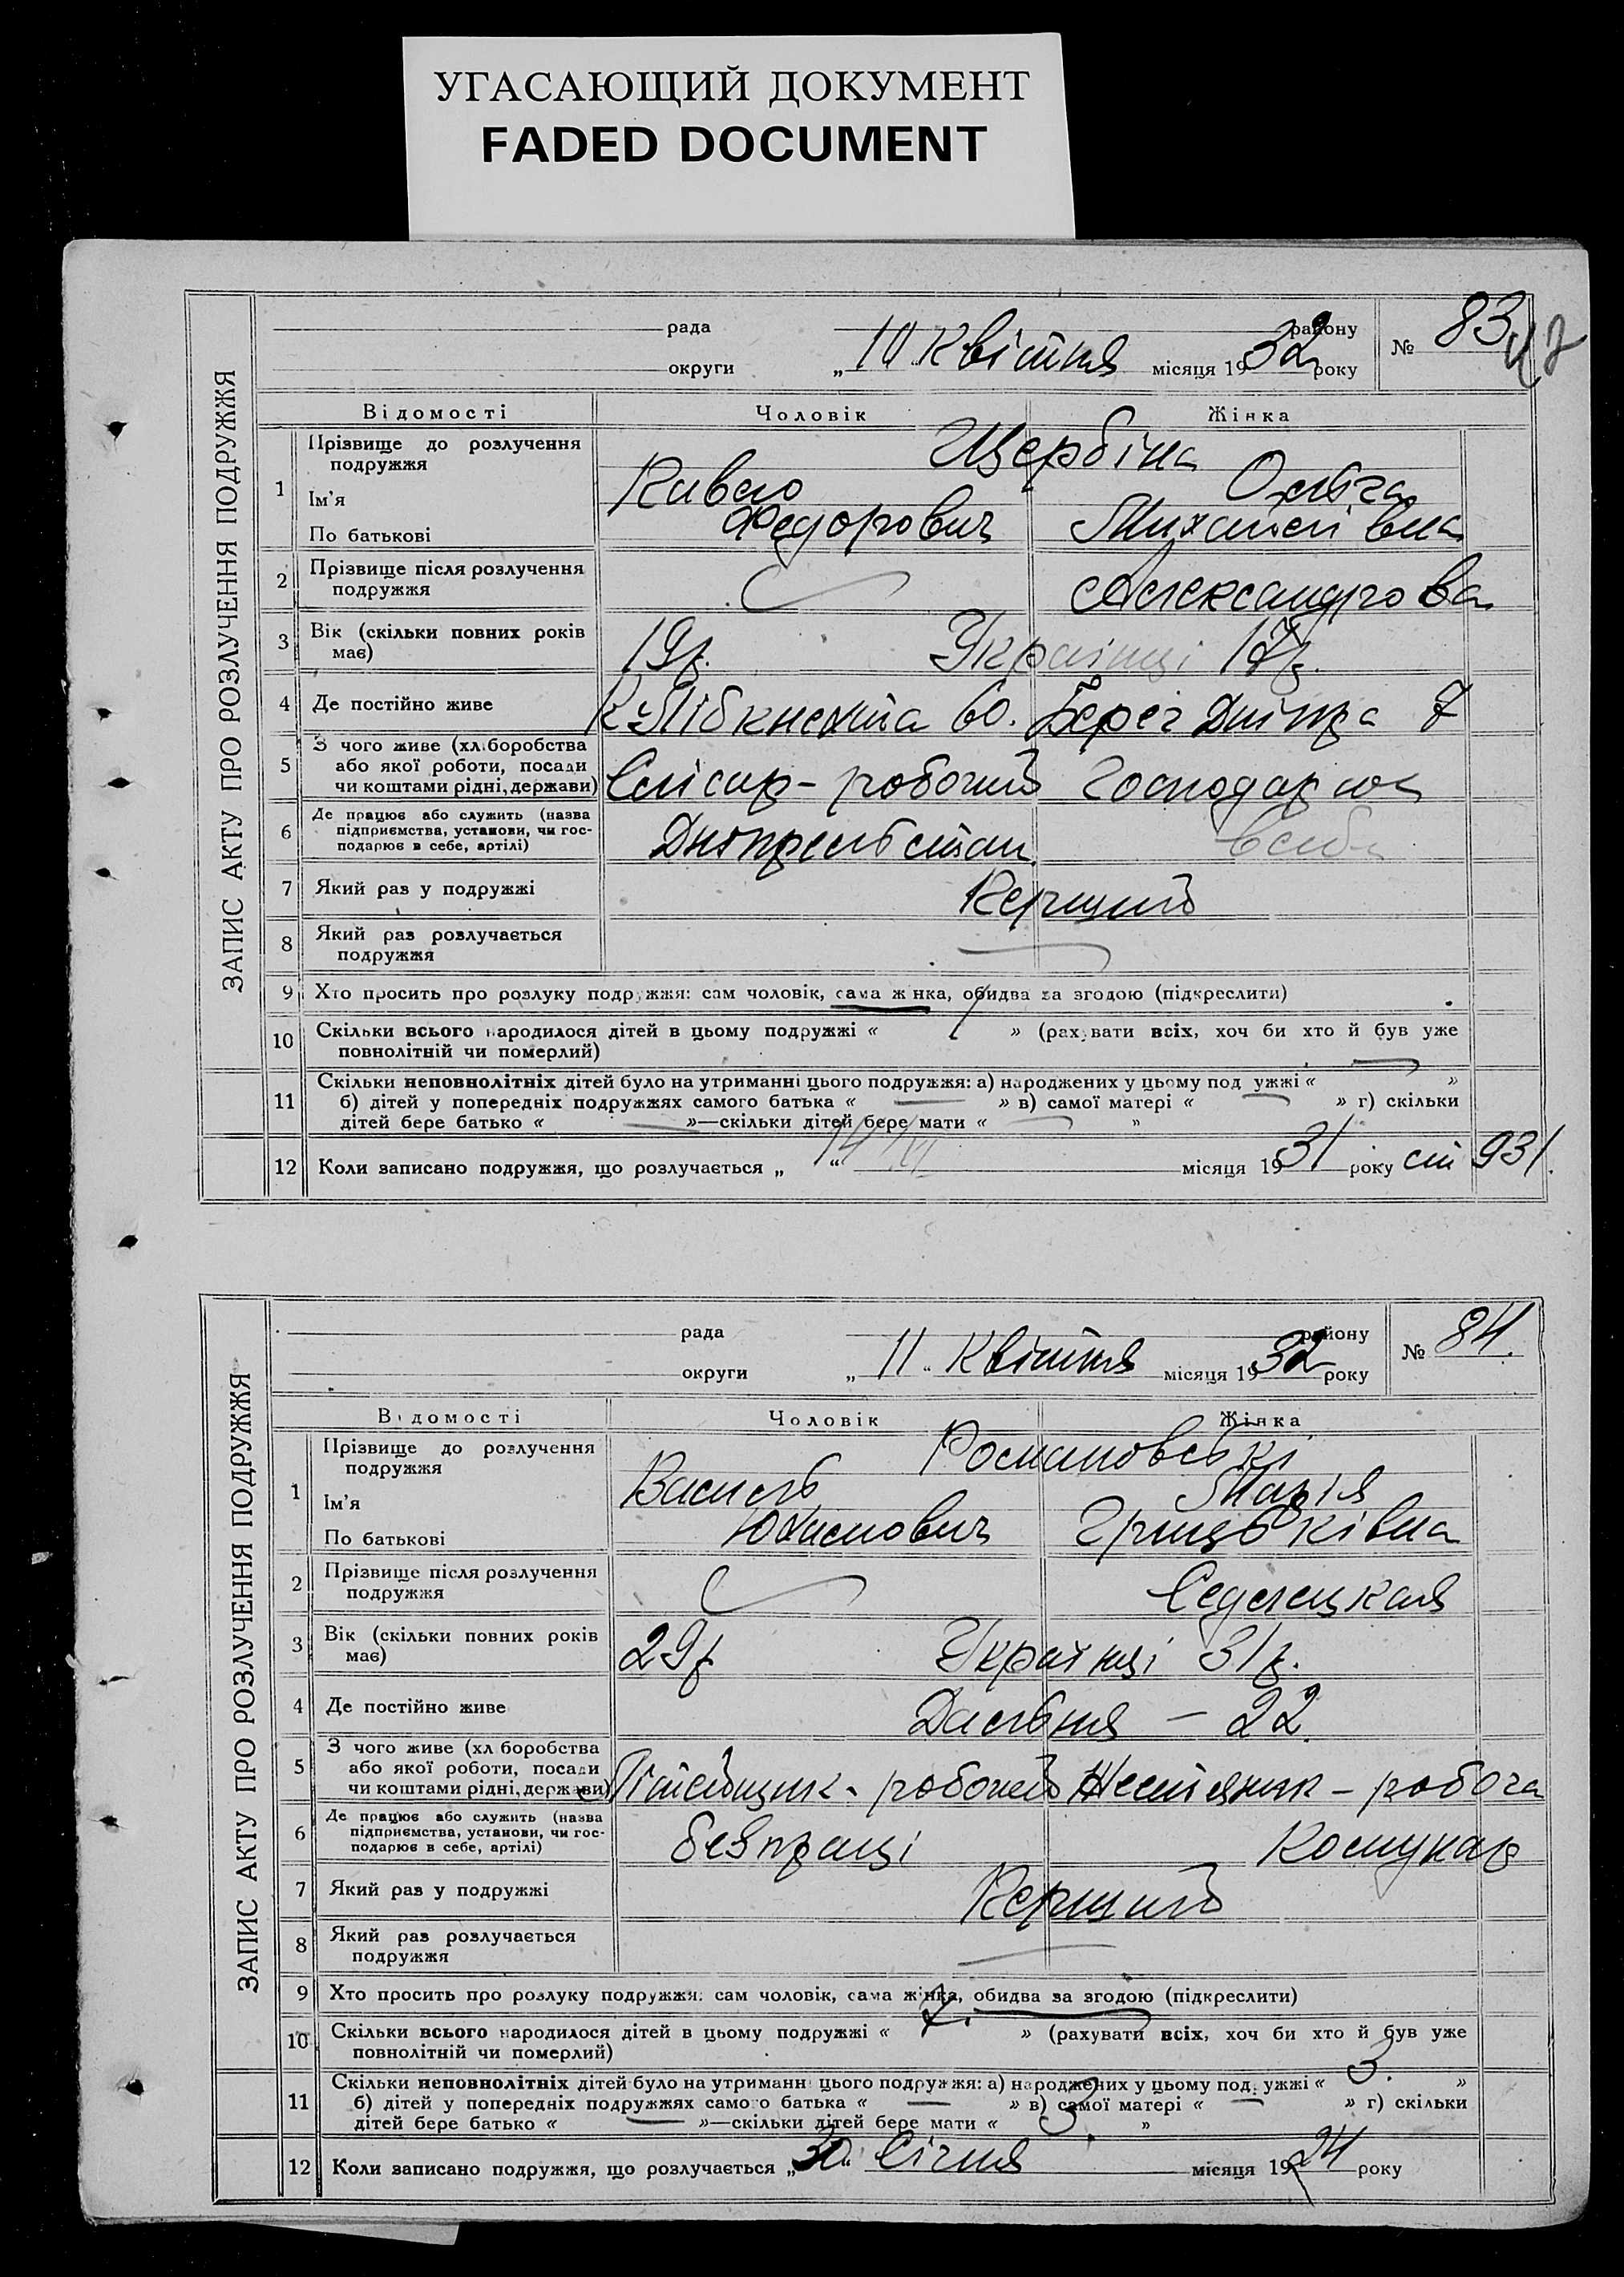 УГАСАЮЩИЙ ДОКУМЕНТ
FADED DOCUMENT
ЗАПИС АКТУ ПРО РОЗЛУЧЕННЯ ПОДРУЖЖЯ
рада району № 83
округи „10" Квітня місяця 1932 року
Відомості Чоловік Жінка
1 Прізвище до розлучення подружжя Щербіна
Ім'я Павло Ольга
По батькові Федорович Михайлівна
2 Прізвище після розлучення
подружжя Александрова
3 Вік (скільки повних років
має) 19р. Українці 17р.
4 Де постійно живе К. Лібкнехта 60. Берег Дніпра 7
5 З чого живе (хліборобства
або якої роботи, посади
чи коштами рідні, держави) Слісар - робочий Господарюк
6 Де працює або служить (назва
підприємства, установи, чи гос-
подарює в себе, артілі)
7 Який раз у подружжі Перший
8 Який раз розлучається
подружжя
9 Хто просить про розлуку подружжя: сам чоловік, сама жінка, обидва за згодою (підкреслити)
10 Скільки всього народилося дітей в цьому подружжі « » (рахувати всіх, хоч би хто й був уже
повнолітній чи померлий)
11 Скільки неповнолітніх дітей було на утриманні цього подружжя: а) народжених у цьому подружжі « — »
б) дітей у попередніх подружжях самого батька « — » в) самої матері « — » г) скільки
дітей бере батько « — »—скільки дітей бере мати « — »
12 Коли записано подружжя, що розлучається „14" VI місяця 1931 року ст 931.
ЗАПИС АКТУ ПРО РОЗЛУЧЕННЯ ПОДРУЖЖЯ
рада району № 84.
округи „11" Квітня місяця 1932 року
Відомості Чоловік Жінка
1 Прізвище до розлучення подружжя Романовські
Ім'я Василь Марія
По батькові Юхимович Грицьківна
2 Прізвище після розлучення
подружжя Седлецкая
3 Вік (скільки повних років
має) 29р Українці 31р.
4 Де постійно живе Дальня — 22
5 З чого живе (хліборобства
або якої роботи, посади
чи коштами рідні, держави) Літейщик - робочий - робоча
6 Де працює або служить (назва
підприємства, установи, чи гос-
подарює в себе, артілі) без праці Комунар
7 Який раз у подружжі Перший
8 Який раз розлучається
подружжя
9 Хто просить про розлуку подружжя: сам чоловік, сама жінка, обидва за згодою (підкреслити)
10 Скільки всього народилося дітей в цьому подружжі « » (рахувати всіх, хоч би хто й був уже
повнолітній чи померлий)
11 Скільки неповнолітніх дітей було на утриманні цього подружжя: а) народжених у цьому подружжі « 3. »
б) дітей у попередніх подружжях самого батька « — » в) самої матері « — » г) скільки
дітей бере батько « — »—скільки дітей бере мати « 3. »
12 Коли записано подружжя, що розлучається „30" Січня місяця 1924 року